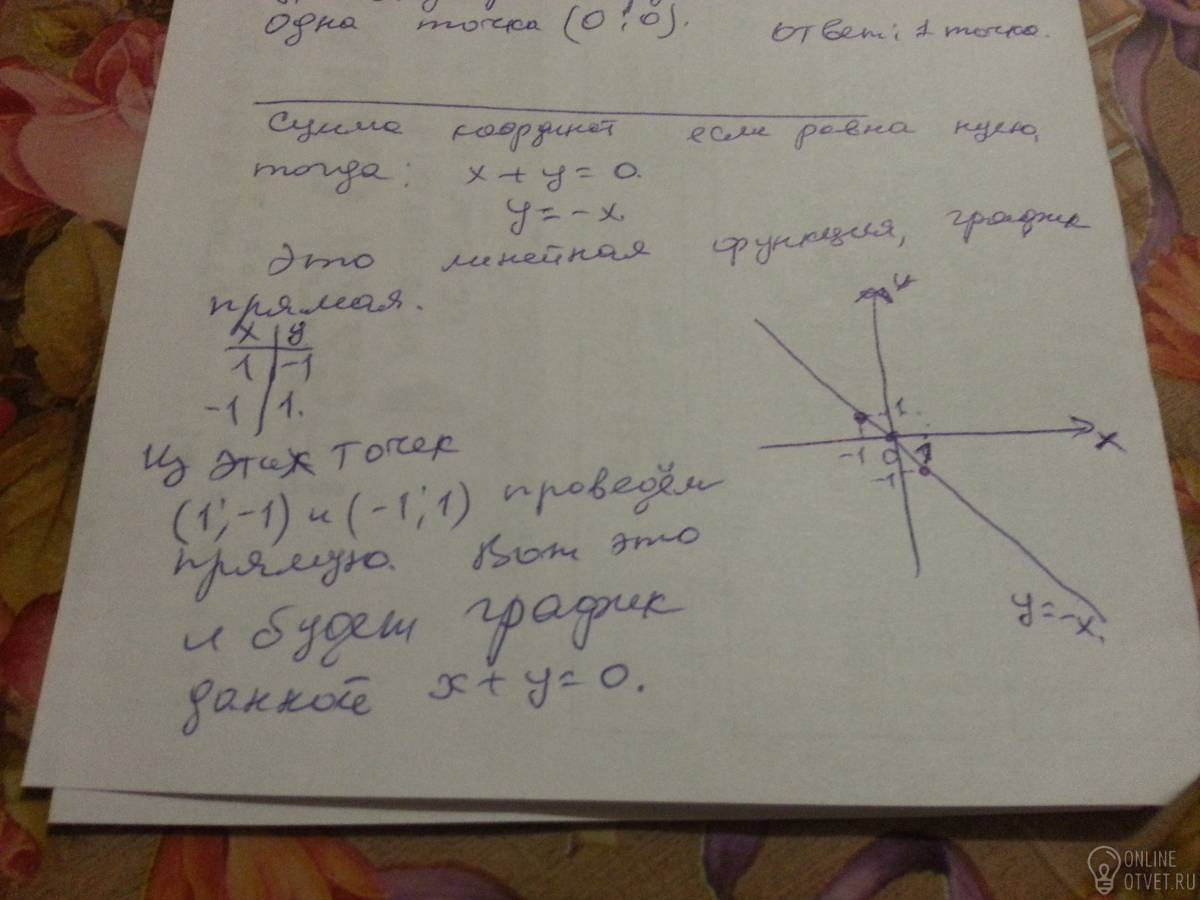 одна точка (0; 0). Ответ: 1 точка.
Сумма координат если равна нулю,
тогда: x + y = 0.
y = -x.
Это линейная функция, график
прямая.
x | y
1 | -1
-1 | 1.
Из этих точек
(1; -1) и (-1; 1) проведём
прямую. Вот это
и будет график
данной x + y = 0.
y
1
-1 0 1 x
-1
y = -x.
ONLINE
OTVET.RU